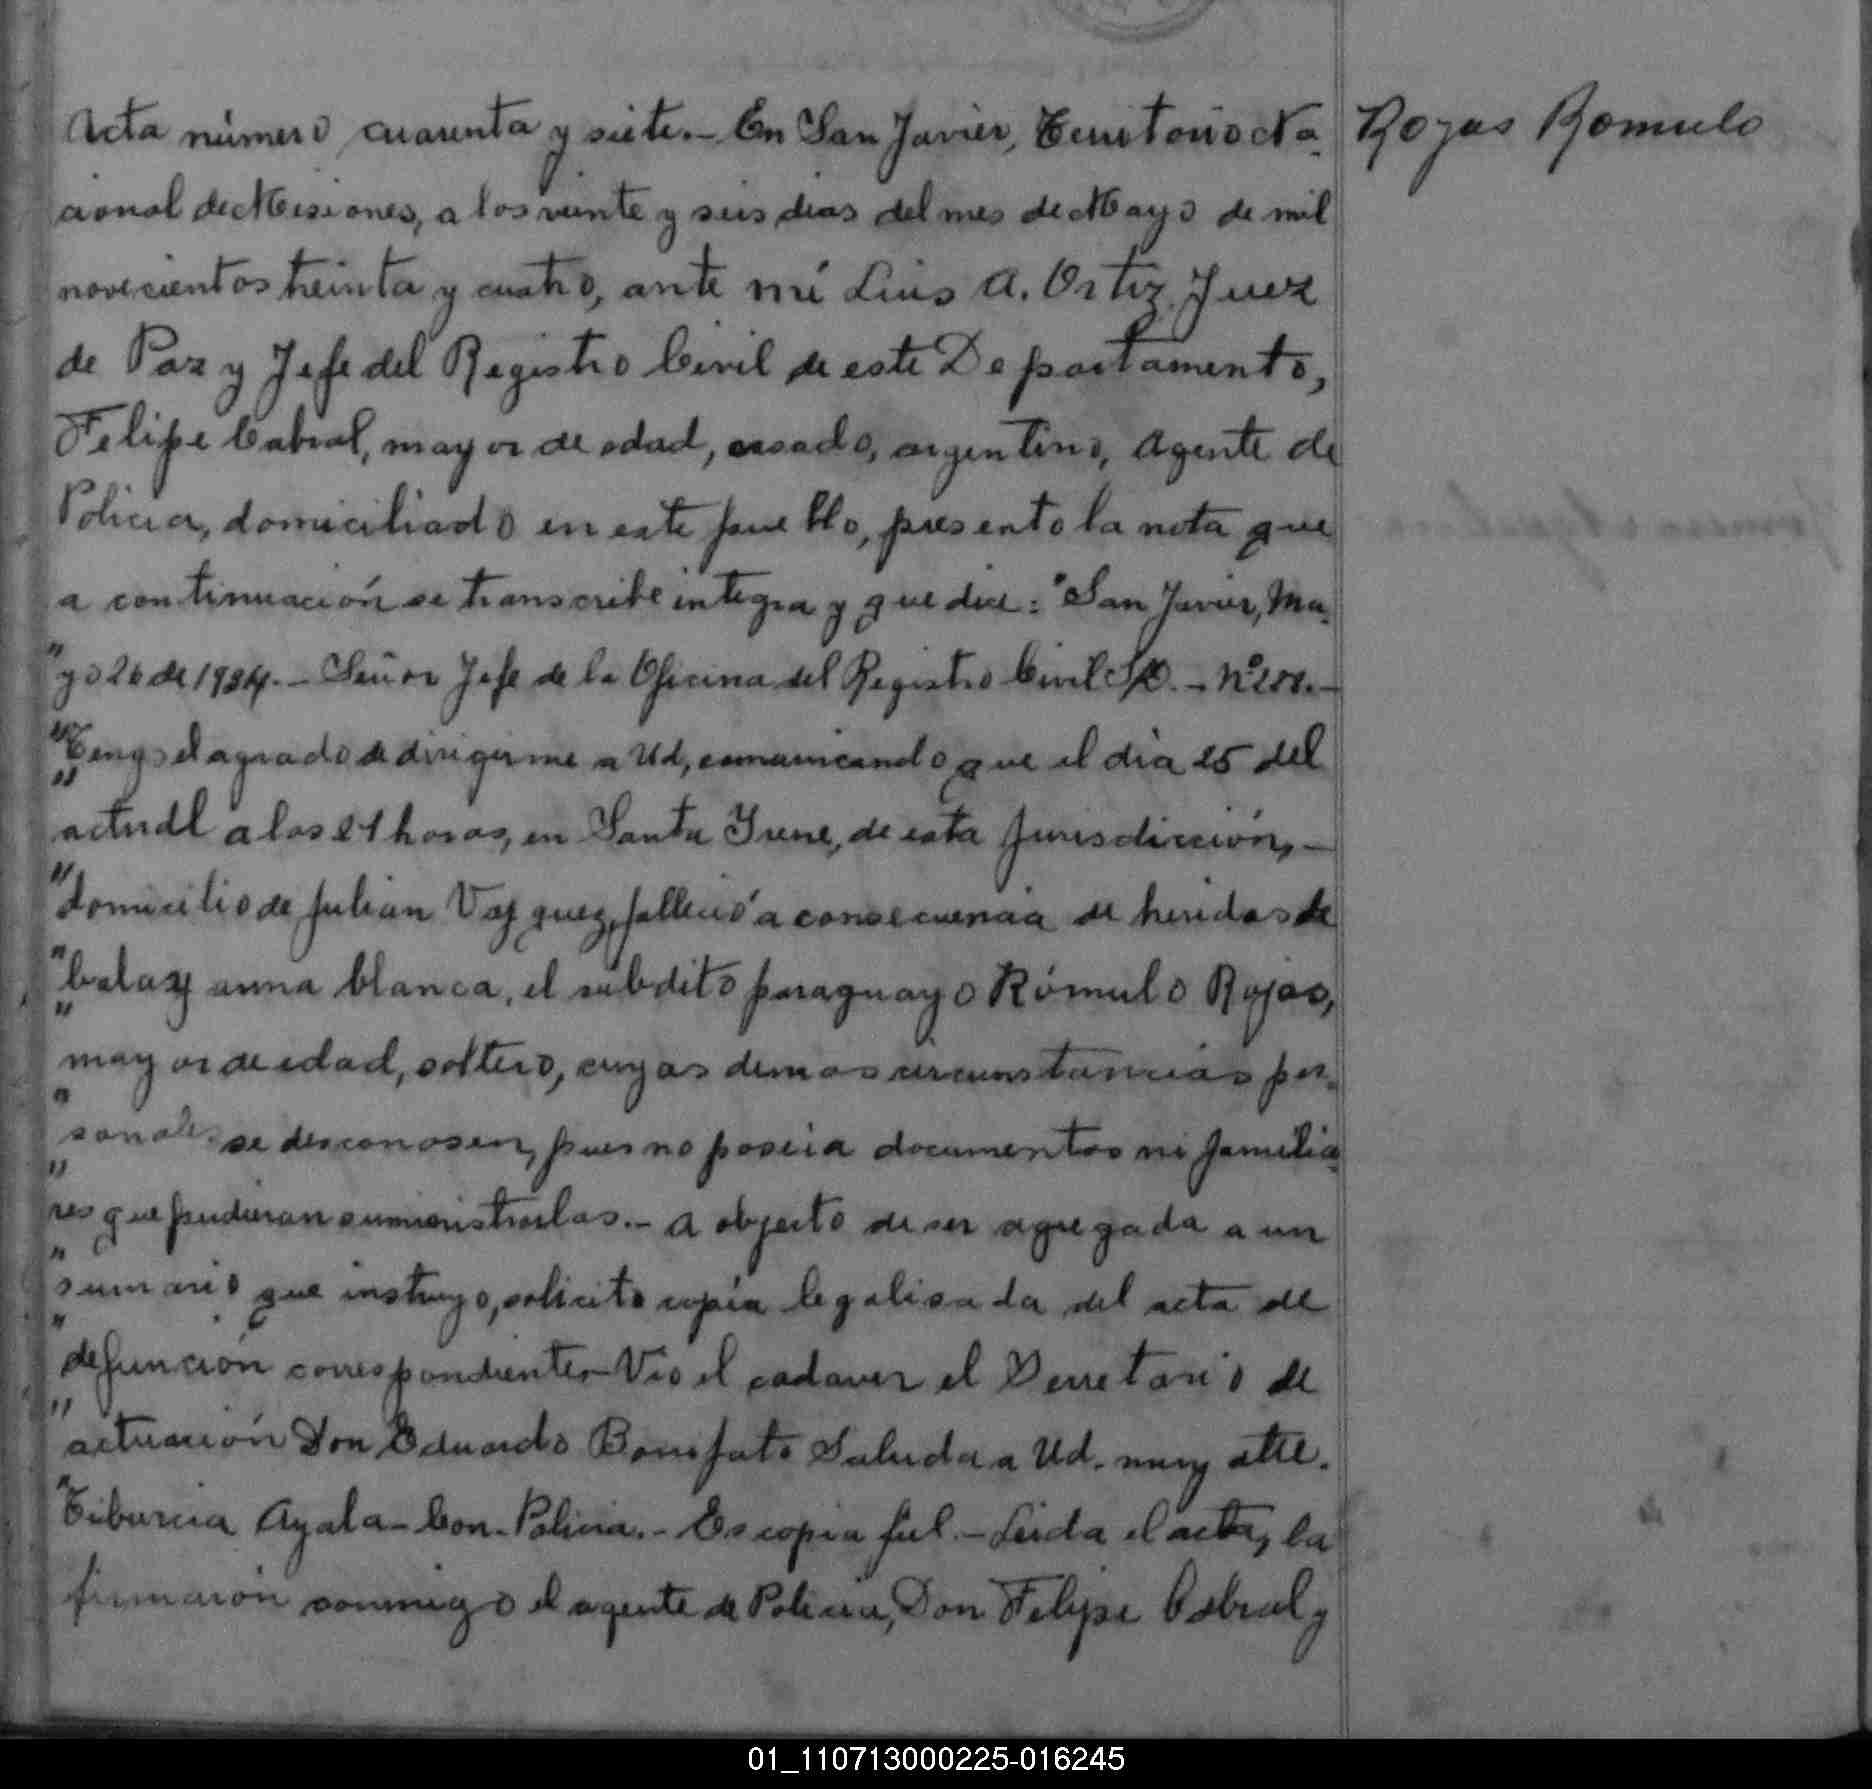 Acta número cuarenta y siete.- En San Javier, Territorio Na-
cional de Misiones, a los veinte y seis dias del mes de Mayo de mil
novecientos treinta y cuatro, ante mí Luis A. Ortiz Juez
de Paz y Jefe del Registro Civil de este Departamento,
Felipe Cabral, mayor de edad, casado, argentino, Agente de
Policia, domiciliado en este pueblo, presento la nota que
a continuación se transcribe integra y que dice: "San Javier, Ma-
"yo 26 de 1934.- Señor Jefe de la Oficina del Registro Civil S/D. - Nº
"Tengo el agrado de dirigirme a Ud, comunicando que el dia 25 del
" actual a las 21 horas, en Santa Irene, de esta Jurisdicción, -
"domicilio de Julian Vazquez, falleció a consecuencia de heridas de
"bala y arma blanca, el subdito paraguayo Rómulo Rojas,
" mayor de edad, soltero, cuyas demas circunstancias per-
" sonales se desconosen, pues no poseia documentos ni familia-
" res que pudieran suministrarlas.- A objecto de ser agregada a un
" sumario que instruyo, solicito copia legalisada del acta de
" defunción correspondiente- Vio el cadaver el Secretario de
" actuación Don Eduardo Bonifato Saluda a Ud. muy atte.
" Tiburcia Ayala- Com- Policia.- Es copia fiel.- Leida el acta, la
firmarón conmigo el agente de Policia, Don Felipe Cabral y
Rojas Romulo
01_110713000225-016245